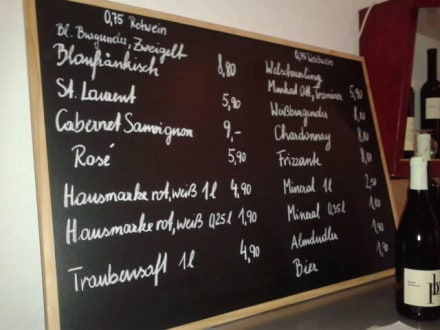 0,75 Rotwein
Bl. Burgunder, Zweigelt
Blaufränkisch 8,80
St. Laurent 5,90
Cabernet Sauvignon 9,-
Rosé 5,90
Hausmarke rot, weiß 1l 4,90
Hausmarke rot, weiß 0,25l 1,90
Traubensaft 1l 4,90
0,75 Weißwein
Welschriesling
Muskat Ott, Traminer 5,90
Weißburgunder 8,80
Chardonnay 8,80
Frizzante 8,80
Mineral 1l 2,50
Mineral 0,35l 1,00
Almdudler 1,90
Bier 1,90